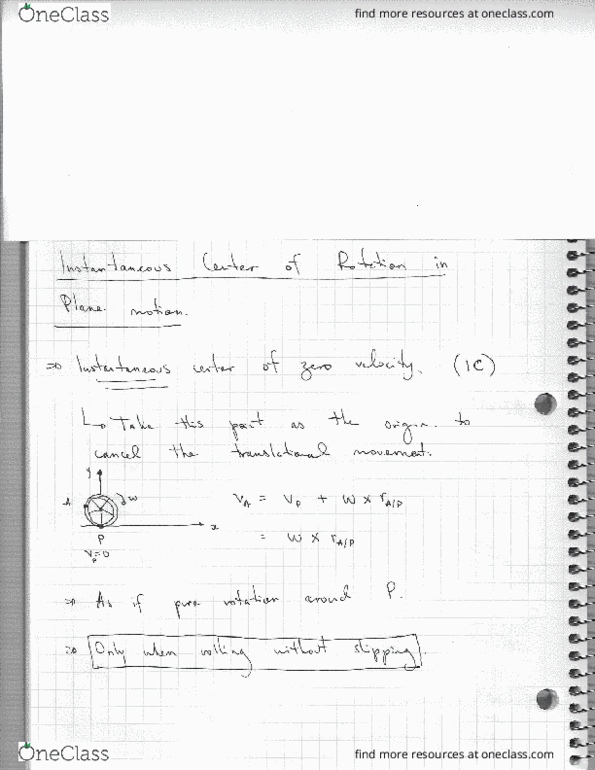 OneClass
find more resources at oneclass.com
Instantaneous Center of Rotation in
Plane motion.
⇒ Instantaneous center of zero velocity. (IC)
↳ Take this point as the origin to
cancel the translational movement.
y
A
ω
V_A = V_P + ω × r_A/P
x
= ω × r_A/P
P
V_P = 0
⇒ As if pure rotation around P.
⇒ Only when rolling without slipping
OneClass
find more resources at oneclass.com